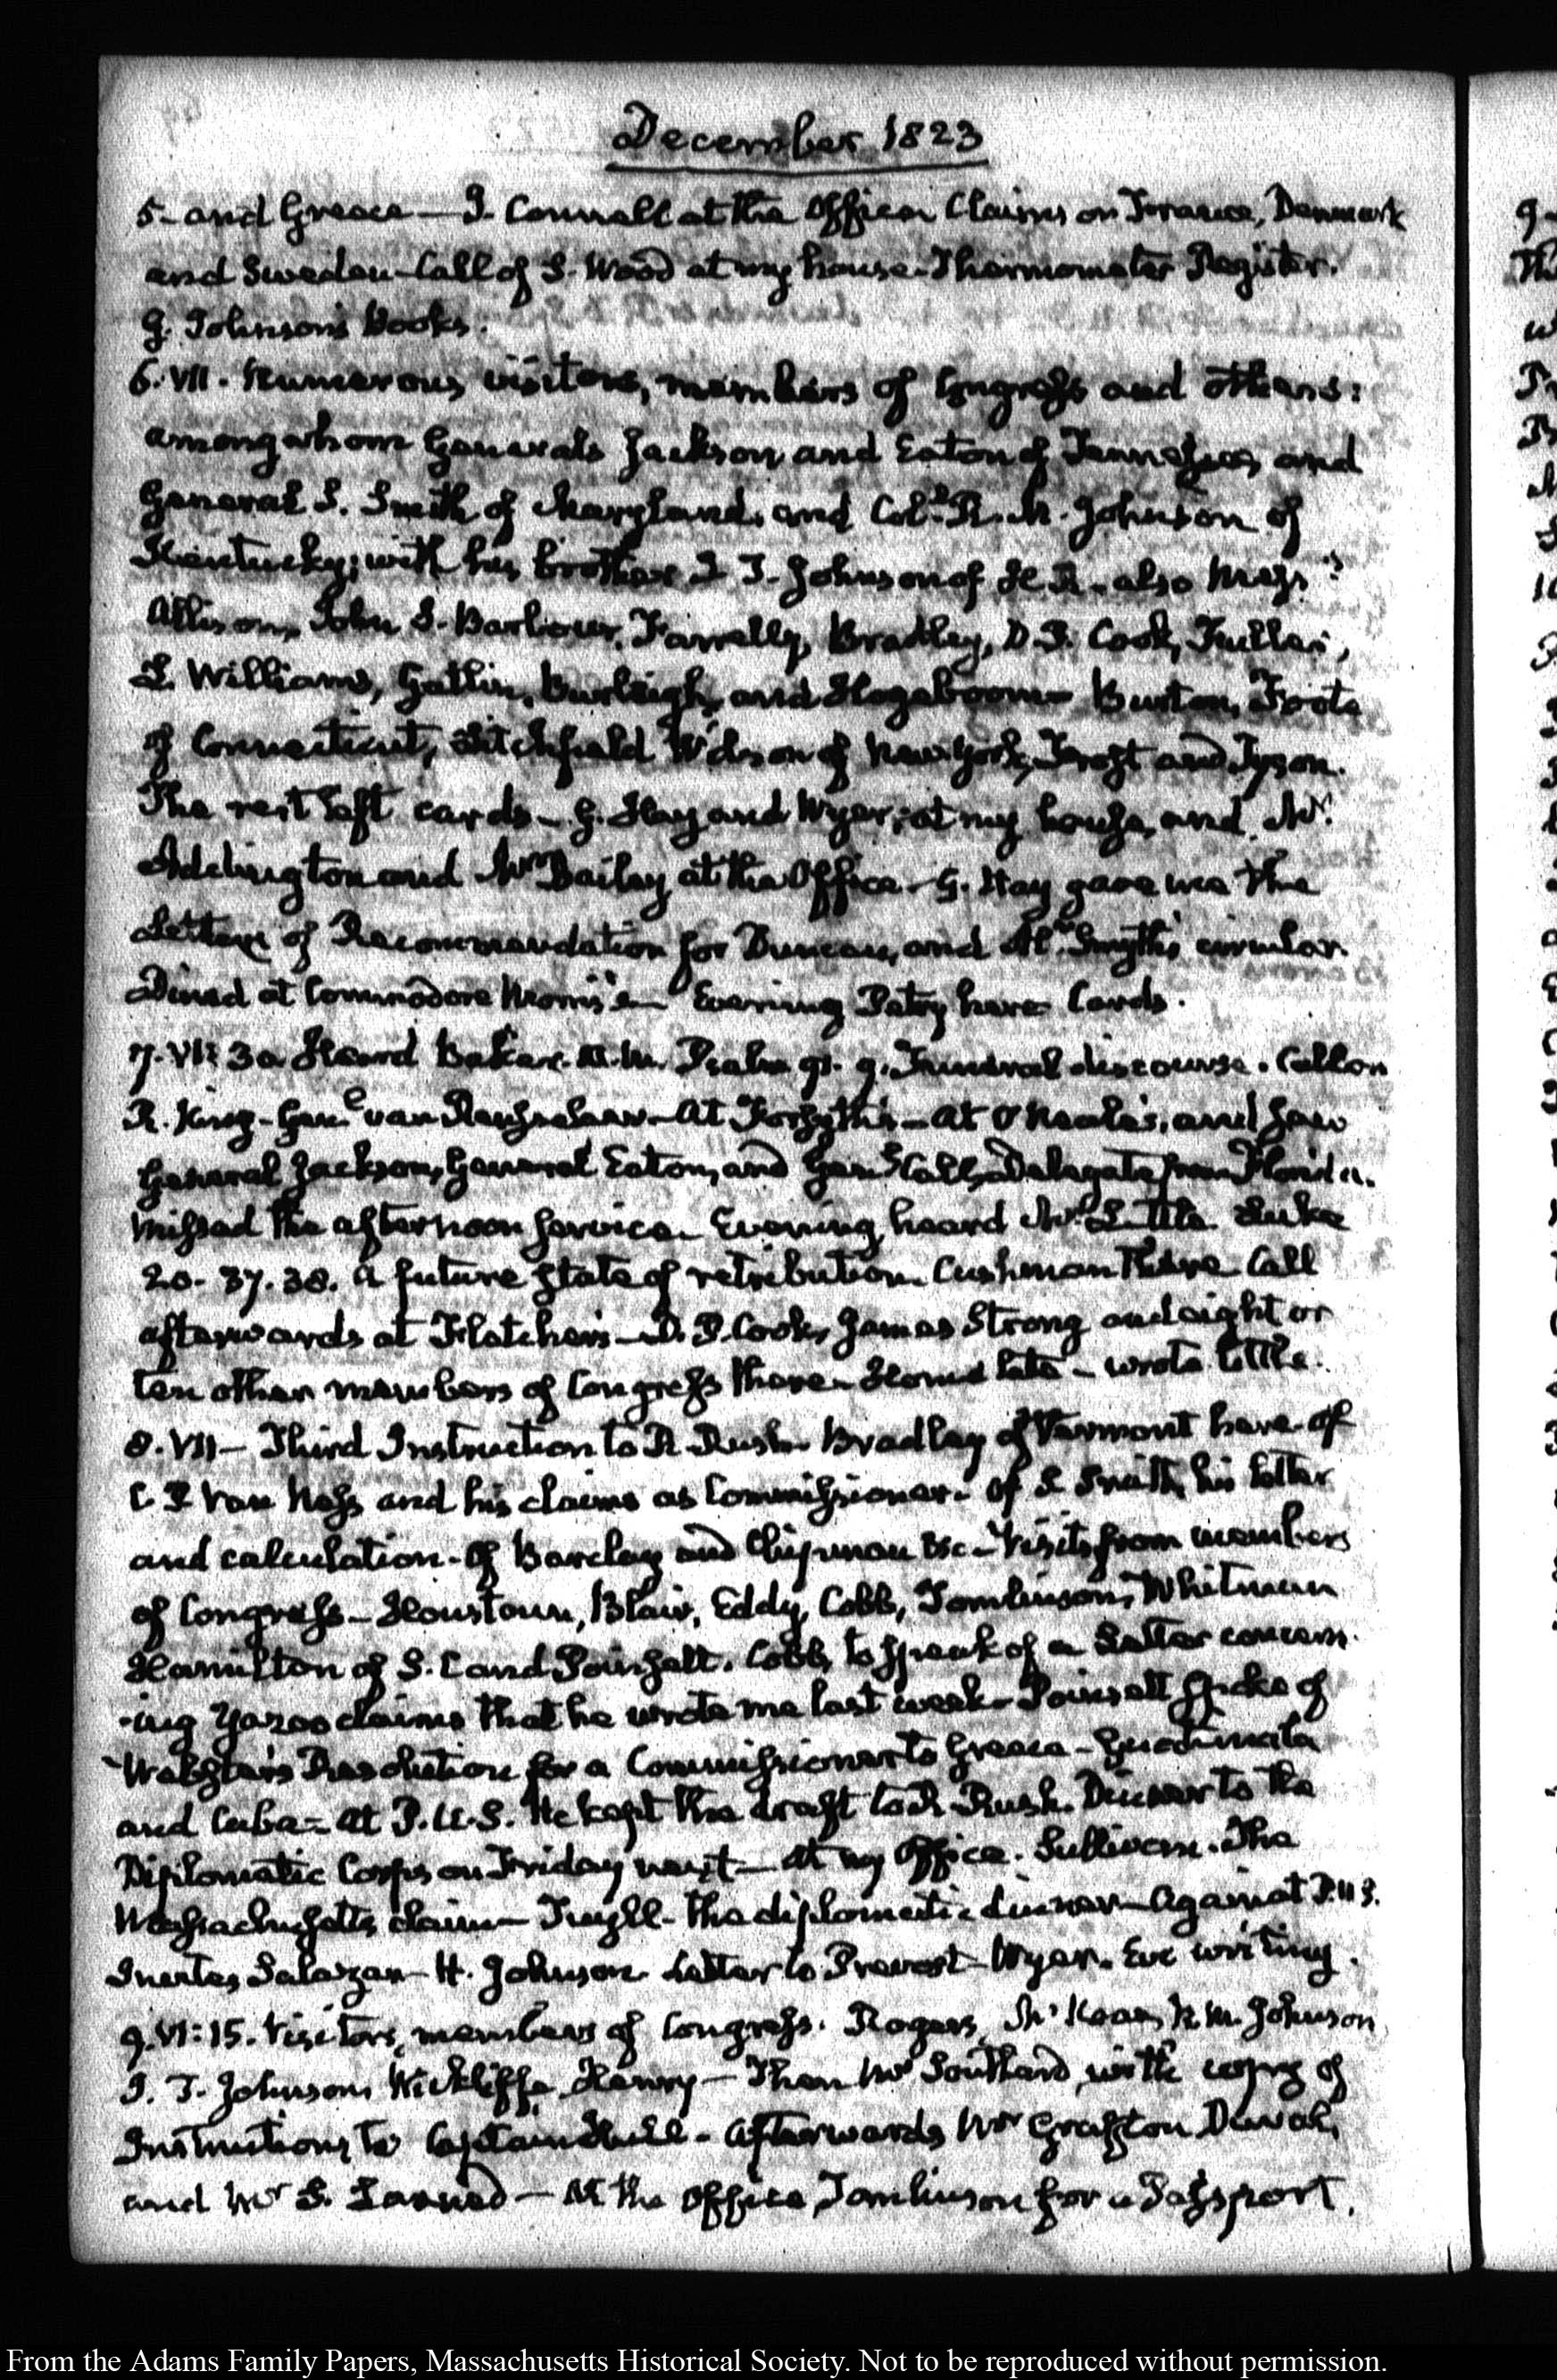 December 1823
5- and Greece — J. Connell at the Office Claims on France, Denmark
and Sweden - Call of S. Wood at my house - Thermometer Register.
G. Johnson's Books.
6. VII. Numerous visitors, members of Congress and others:
among whom Generals Jackson and Eaton of Tennessee, and
General S. Smith of Maryland, and Col. R. M. Johnson of
Kentucky; with his brother J. T. Johnson of H.R. also Messrs
Allison, John S. Barbour, Farrelly, Bradley, D. P. Cook, Fuller,
L. Williams, Gatlin, Burleigh, and Hogeboom - Burton, Foote
of Connecticut, Litchfield Wilson of New York, Frost and Tyson.
The rest left cards - G. Hay and Wyer; at my house, and Mr.
Addington and Mr Bailey at the Office - G. Hay gave me the
Letters of Recommendation for Duncan, and Al. Smyth's circular.
Dined at Commodore Morris's - Evening Patry here Cards.
7. VII: 30 Heard Baker. M. M. Psalm 9. Funeral discourse. Call on
R. King - Genl van Rensselaer - At Forsyth's - at O'Neale's, and saw
General Jackson, General Eaton, and Genl Call, Delegate from Florida.
Missed the afternoon service - Evening, heard Mr. Little Luke
20. 37. 38. A future state of retribution. Cushman there - Call
afterwards at Fletcher's - D. P. Cook, James Strong and eight or
ten other members of Congress there - Home late - wrote little.
8. VII - Third Instruction to R. Rush - Bradley of Vermont here - of
C. P. Van Ness and his claims as Commissioner - of S. Smith, his letter
and calculation - of Barclay and Chipman &c - Visits from members
of Congress - Houstoun, Blair, Eddy, Cobb, Tomlinson, Whitman
Hamilton of S. C and Poinsett. Cobb, to speak of a Letter concern-
-ing Yazoo claims that he wrote me last week - Poinsett spoke of
Webster's Resolution for a Commissioner to Greece - Guatimala
and Cuba - at P. U. S. He kept the draft to R. Rush. Dinner to the
Diplomatic Corps on Friday next - At my Office. Sullivan. The
Massachusetts claim - Tuyll - the diplomatic dinner - Against P.U.S.
Inertes, Salazar - H. Johnson Letter to Prevost - Wyer. Eve writing.
9. VI: 15. Visitors, members of Congress. Rogers, McKean, R. M. Johnson,
J. T. Johnson, Wickliffe, Henry - Then Mr Southard, with copy of
Instructions to Captain Hull - Afterwards Mr Grafton Duval,
and Mr S. Larned - At the Office, Tomlinson for a Passport.
From the Adams Family Papers, Massachusetts Historical Society. Not to be reproduced without permission.